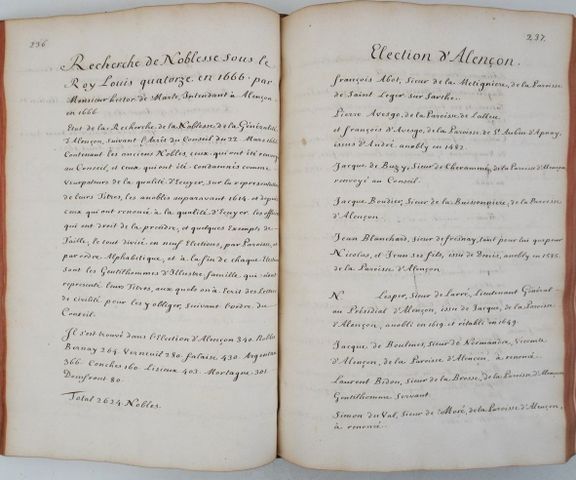 236
Recherche de Noblesse sous le
Roy Louis quatorze en 1666 par
Monsieur hector de Marle Intendant à Alençon
en 1666
Etat de la Recherche de la Noblesse de la Généralité
d'Alençon, suivant l'Arêt du Conseil du 22 Mars 1666
Contenant les anciens Nobles, ceux qui ont été renvoy
au Conseil, et ceux qui ont été condamnés comme
usurpateurs de la qualité d'Ecuyer, sur la représentation
de leurs Titres, les anoblis auparavant 1614 et depuis
ceux qui ont renoncé à la qualité d'Ecuyer. les offici
qui ont droit de la prendre, et quelques Exempts de
Taille, le tout divisé en neuf Elections, par Paroisse, et
par ordre Alphabetique, et à la fin de chaque Election
sont les Gentilshommes d'Illustre famille, qui
représenté leurs Titres, aux quels on a Ecrit des Lettres
de civilité pour les y obliger, suivant l'ordre du
Conseil.
Il s'est trouvé dans l'Election d'Alençon 340 Nobles
Bernay 264 Verneuil 280. falaise 430. Argentan
366. Conches 160 Lisieux 403. Mortagne 301
Domfront 80.
Total 2624 Nobles.
237.
Election d'Alençon.
françois Abot, Sieur de la Metigniere, de la Paroisse
de Saint Leger sur Sarthe.
Pierre Avesgo, de la Paroisse de Lalleu
et françois d'Avesgo, de la Paroisse de St Aubin d'Apnay,
issus d'André anobly en 1482.
Jacque de Buzy, Sieur de Cheramme, de la Paroisse d'Alençon
renvoyé au Conseil.
Jacque Boudier, Sieur de la Buissonniere, de la Paroisse
d'Alençon
Jean Blanchard, Sieur de fresnay, tant pour lui que pour
Nicolas, et Jean ses fils, issu de Denis, anobly en 1595.
de la Paroisse d'Alençon
N Lesper, Sieur de Larré, Lieutenant Général
au Présidial d'Alençon, issu de Jacque, de la Paroisse
d'Alençon, anobli en 1619 et rétabli en 1649.
Jacque de Boulmer, Sieur de Normandin, Vicomte
d'Alençon, de la Paroisse d'Alençon, à renoncé.
Laurent Bidon, Sieur de la Brosse, de la Paroisse d'Alençon
Gentilhomme Servant
Simon du Val, Sieur de Moré, de la Paroisse d'Alençon,
à renoncé.